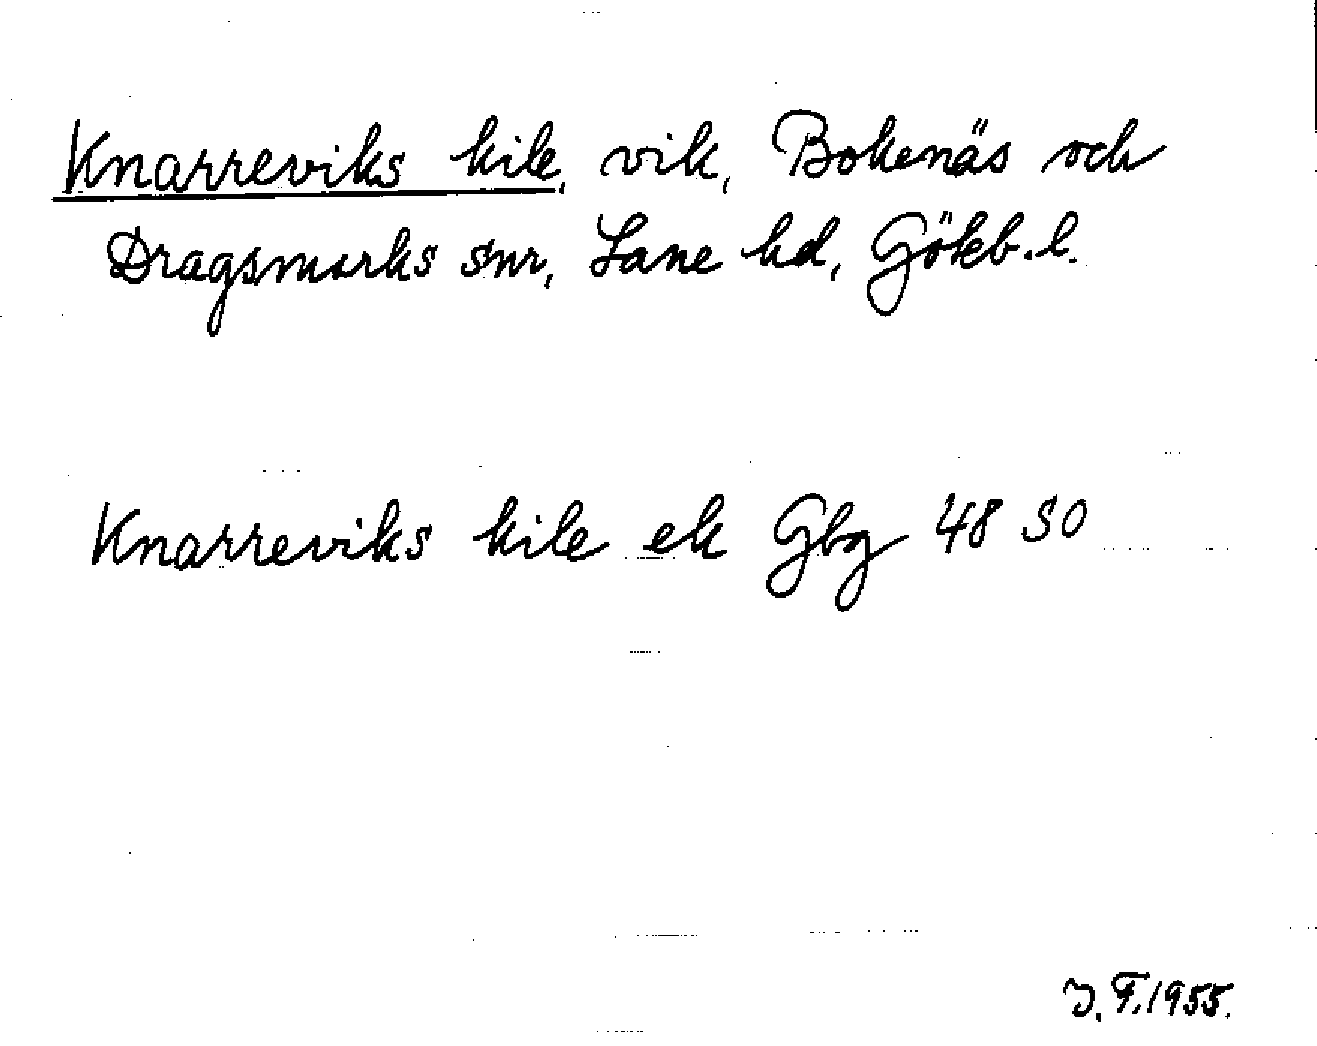 Knarreviks kile, vik, Bokenäs och
Dragsmarks snr, Lane hd, Göteb. l.
Knarreviks kile ek Gbg 48 SO
J. F. 1955.